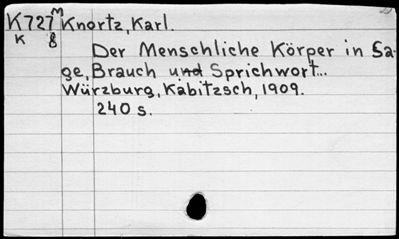 K727 M Knortz, Karl.
K 8
Der Menschliche Körper in Sa-
ge, Brauch und Sprichwort...
Würzburg, Kabitzsch, 1909.
240 s.